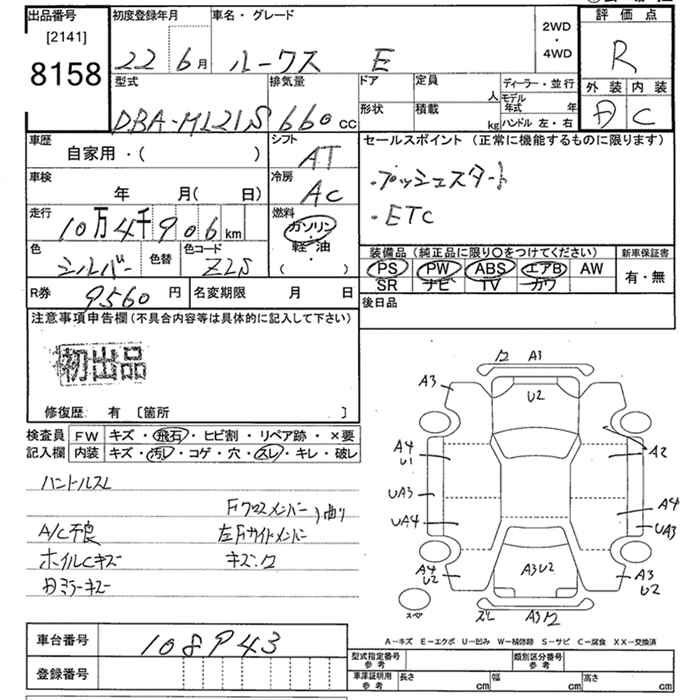 出品番号 [2141] 8158
初度登録年月 22 6月
車名・グレード ルークス E
2WD ・ 4WD
評価点 R
外装 内装 C
型式 DBA-ML21S
排気量 660 cc
ドア 形状
定員 人 積載 kg
ディーラー・並行
モデル年式 年
ハンドル 左・右
車歴 自家用・( )
シフト AT
車検 年 月( 日)
冷房 AC
走行 10万4千906km
燃料 ガソリン・軽油・( )
色 シルバー 色替 色コード ZLS
セールスポイント (正常に機能するものに限ります)
・プッシュスタート
・ETC
装備品(純正品に限り〇をつけてください)
PS PW ABS エアB AW
SR ナビ TV カワ
新車保証書 有・無
R券 9560円 名変期限 月 日
後日品
注意事項申告欄(不具合内容等は具体的に記入して下さい)
初出品
修復歴 有 [箇所 ]
検査員 FW キズ・飛石・ヒビ割・リペア跡・×要
記入欄 内装 キズ・汚レ・コゲ・穴・スレ・キレ・破レ
ハンドルスレ
Fクロスメンバー
曲り
A/C不良 左Fサイドメンバー
ホイルCキズ キズ・ワ
ミラーキズ
ワ A1
A3 U2
A4 U1 A2
UA3
UA4 A4 UA3
A4 U2 A3U2 A3 U2
スペア A3ワ
A-キズ E-エクボ U-凹み W-補修跡 S-サビ C-腐食 XX-交換済
車台番号 108943
登録番号
型式指定番号 参考 類別区分番号 参考
車庫証明用 参考 長さ cm 幅 cm 高さ cm